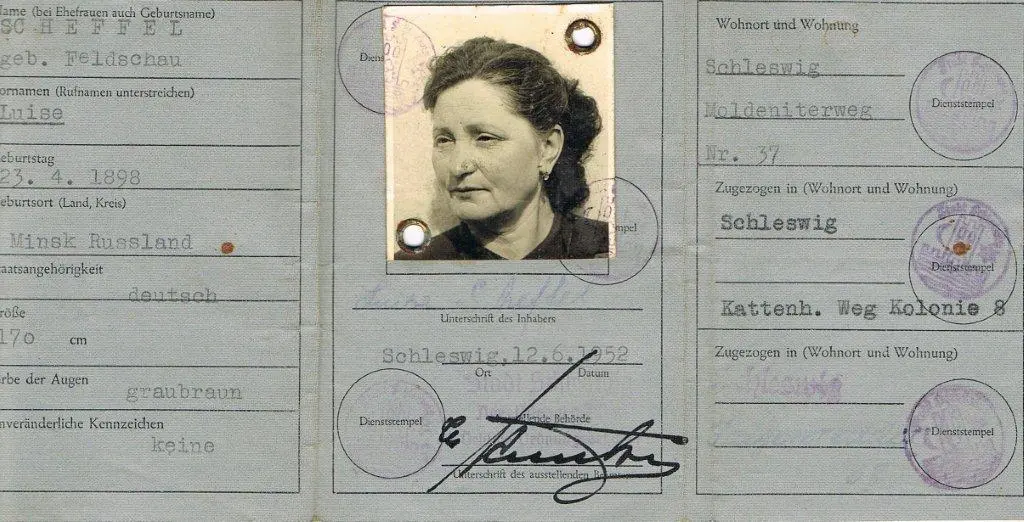 Name (bei Ehefrauen auch Geburtsname)
SCHEFFEL
geb. Feldschau
Vornamen (Rufnamen unterstreichen)
Luise
Geburtstag
23. 4. 1898
Geburtsort (Land, Kreis)
Minsk Russland
Staatsangehörigkeit
deutsch
Größe
170 cm
Farbe der Augen
graubraun
Unveränderliche Kennzeichen
keine
Unterschrift des Inhabers
Schleswig, 12.6.1952
Ort Datum
Dienststempel
Ausstellende Behörde
Unterschrift des ausstellenden
Wohnort und Wohnung
Schleswig
Moldeniterweg
Nr. 37
Dienststempel
Zugezogen in (Wohnort und Wohnung)
Schleswig
Dienststempel
Kattenh. Weg Kolonie 8
Zugezogen in (Wohnort und Wohnung)
Schleswig
Dienststempel